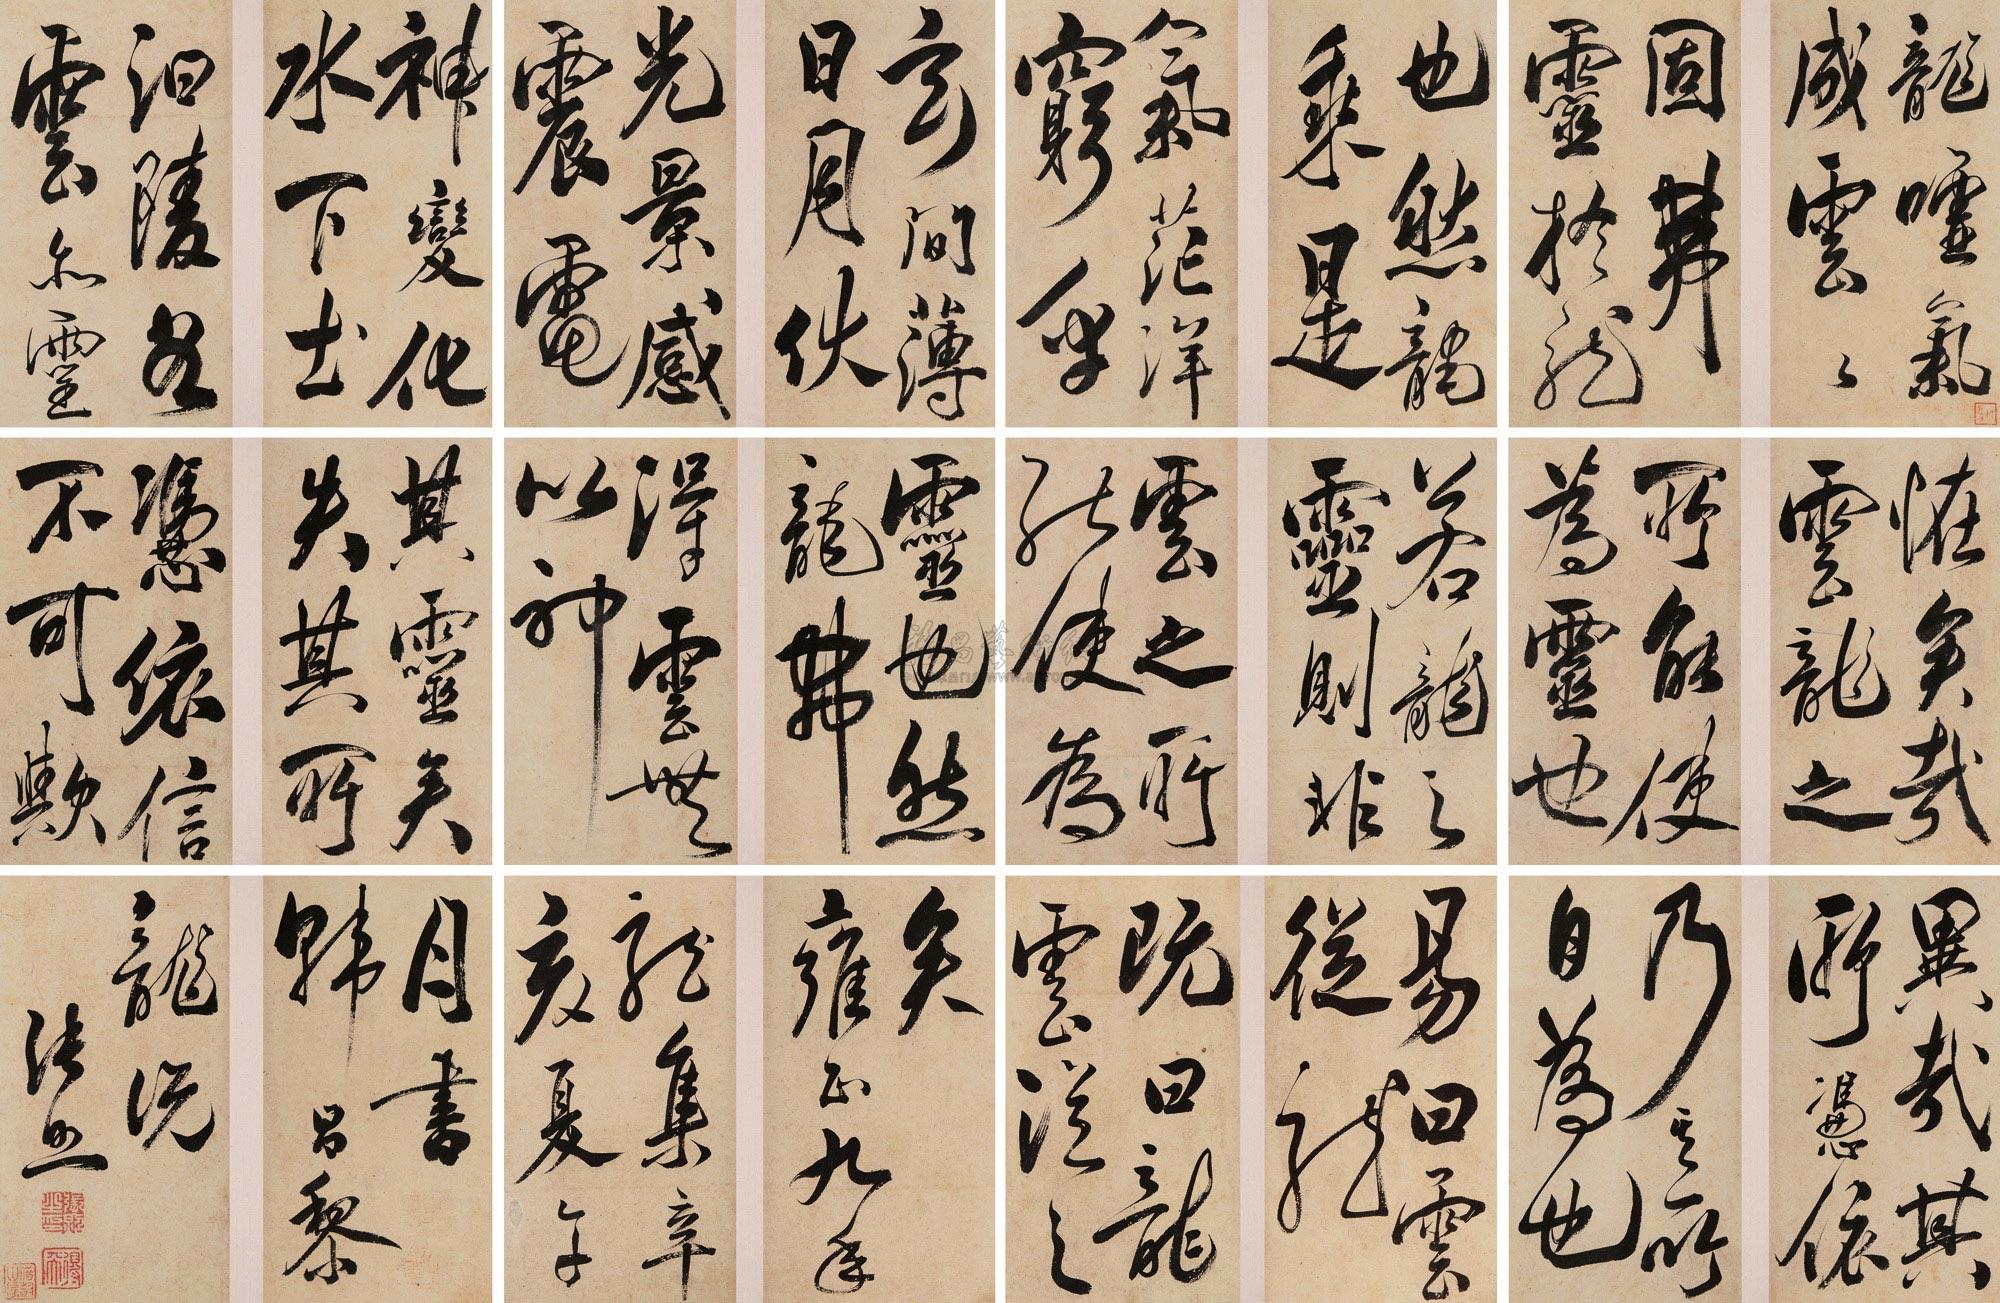 龍嘘氣
成雲々
固弗
靈於龍
也然龍
乘是
氣茫洋
窮乎
玄間薄
日月伏
光景感
震電
神變化
水下土
汩陵谷
雲亦靈
怪矣哉
雲龍之
所能使
為靈也
若龍之
靈則非
雲之所
能使為
靈也然
龍弗
得雲無
以神
其靈矣
失其所
憑依信
不可歟
異哉其
所憑依
乃其所
自為也
易曰雲
從龍
既曰龍
雲從之
矣
雍正九年
龍集辛
亥夏午
月書
韓昌黎
龍說
張照